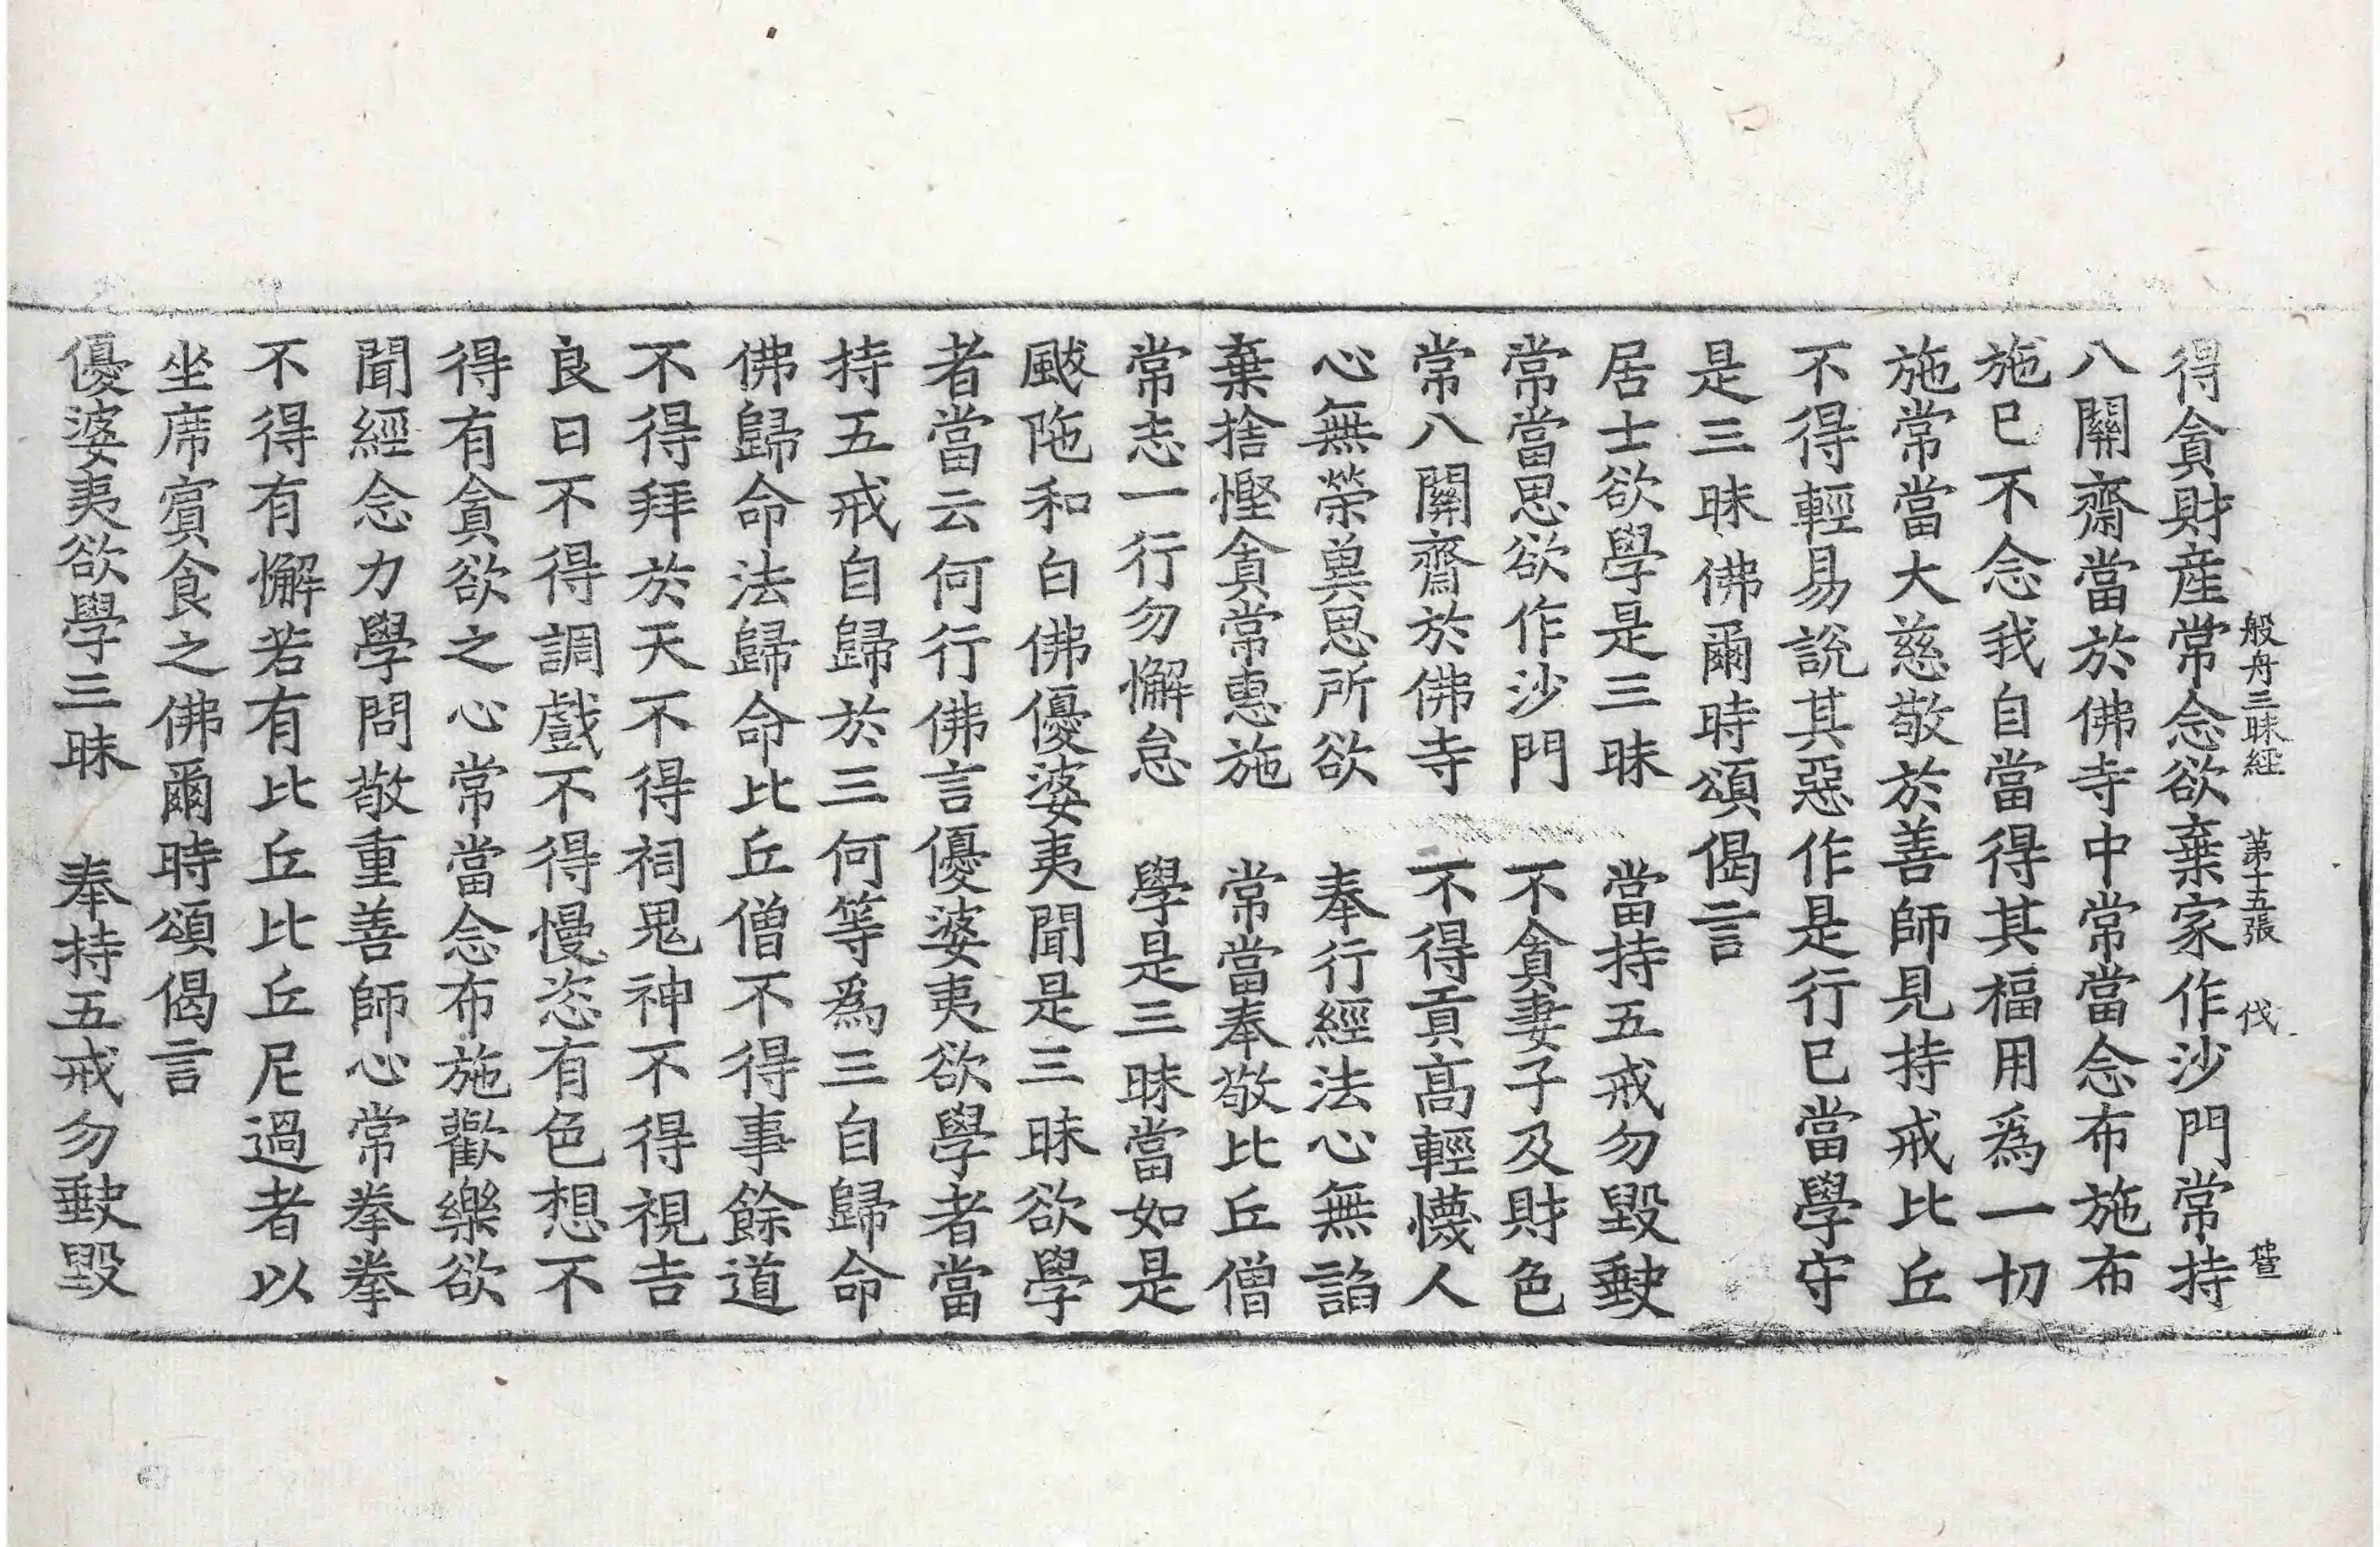 般舟三昧經 第十五張 伐
得貪財産常念欲棄家作沙門常持
八關齋當於佛寺中常當念布施布
施已不念我自當得其福用爲一切
施常當大慈敬於善師見持戒比丘
不得輕易說其惡作是行已當學守
是三昧佛爾時頌偈言
居士欲學是三昧 當持五戒勿毀㪍
常當思欲作沙門 不貪妻子及財色
常八關齋於佛寺 不得貢高輕懱人
心無榮兾思所欲 奉行經法心無諂
棄捨慳貪常惠施 常當奉敬比丘僧
常志一行勿懈怠 學是三昧當如是
颰陁和白佛優婆夷聞是三昧欲學
者當云何行佛言優婆夷欲學者當
持五戒自歸於三何等爲三自歸命
佛歸命法歸命比丘僧不得事餘道
不得拜於天不得祠鬼神不得視吉
良日不得調戲不得慢恣有色想不
得有貪欲之心常當念布施歡樂欲
聞經念力學問敬重善師心常拳拳
不得有懈若有比丘比丘尼過者以
坐席賓食之佛爾時頌偈言
優婆夷欲學三昧 奉持五戒勿㪍毀